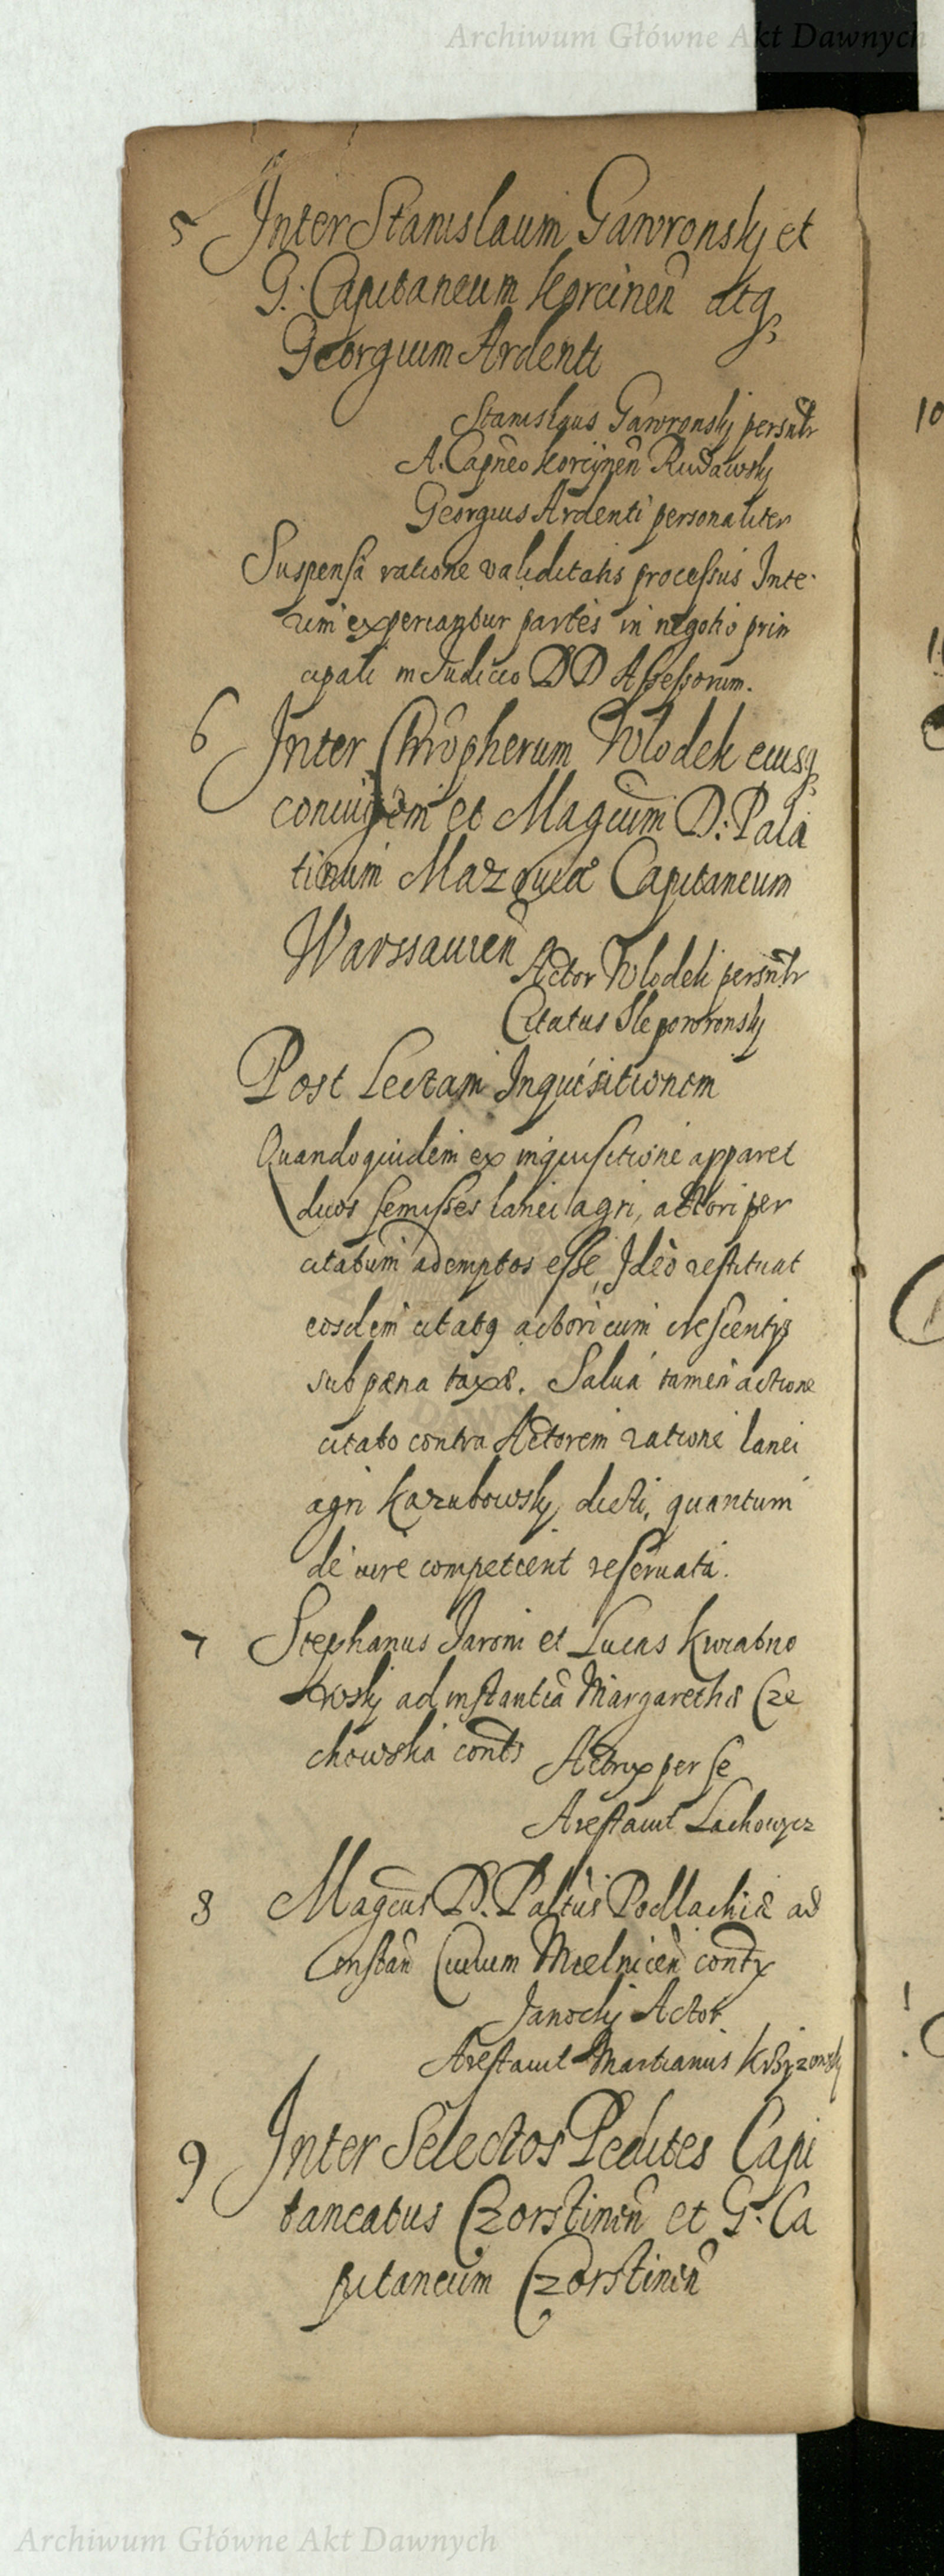 Archiwum Główne Akt Dawnych
5 Inter Stanislaum Gawronsky et
G. Capitaneum Korcinen̄ atq₃
Georgium Ardenti
Stanislaus Gawronsky persnłr
A. Capneo Korcynen̄ Rudawsky
Georgius Ardenti personaliter
Suspensa ratione validitatis processus Inte-
rim experiantur partes in negotio prin
cipali in Judicio DD Assessorum.
6 Inter Chropherum Wlodek eiusq₃
coniugem et Magcum D: Pala
tinum Mazouiæ Capitaneum
Warssauien̄
Actor Wlodek persnłr
Citatus Slepowronsky
Post Lectam Inquisitionem
Quandoquidem ex inquisitione apparet
duos semisses lanei agri, actori per
citatum ademptos esse, Ideo restituat
eosdem citatq actori cum crescentijs
sub pæna taxæ. Salua tamen actione
citato contra Actorem ratione lanei
agri Kazubowsky dicti, quantum
de iure competient reseruata.
7 Stephanus Jaroni et Lucas Kwiatno
wsky ad instantiā Margarethæ Cze
chowska conts
Actrix per se
Arestauit Lachowicz
8 Magcus D. Paltus Podlachiæ ad
Instan̄ Ciuium Mielnicen̄ contx
Janocky Actor
Arestauit Martianus
9 Inter Selectos Pedites Capi
taneatus Czorstinen̄ et G. Ca
pitaneum Czorstinen̄
10
Archiwum Główne Akt Dawnych